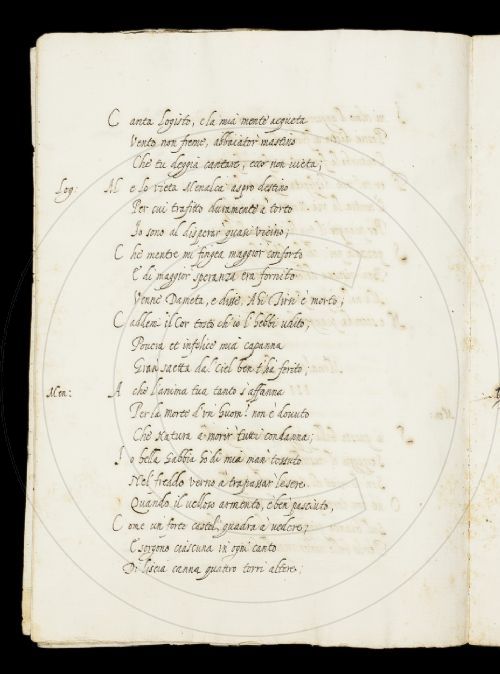 Canta Logisto, e la mia mente acqueta
Vento non freme, abbaiator mastino
Che tu deggia cantare, ecco non vieta;
Log: Me lo vieta Menalca aspro destino
Per cui trafitto duramente à torto
Io sono al disperar quasi vicino;
Che mentre mi fingea maggior conforto
E di maggior speranza era fornito
Venne Dameta, e disse, Ahi Tirsi è morto;
Caddemi il Cor tosto ch'io l'hebbi udito;
Povera et infelice mia capanna
Gran saetta dal Ciel ben t'hà ferito;
Men: A che l'anima tua tanto s'affanna
Per la morte d'vn huom? non è dovuto
Che Natura a morir tutti condanna;
Io bella Gabbia hò di mia man tessuto
Nel freddo verno a trapassar le sere
Quando il velloso armento, è ben pasciuto,
Come un forte castel quadra à vedere;
E sorgono ciascuna in ogni canto
Di liscia canna quattro torri altere;